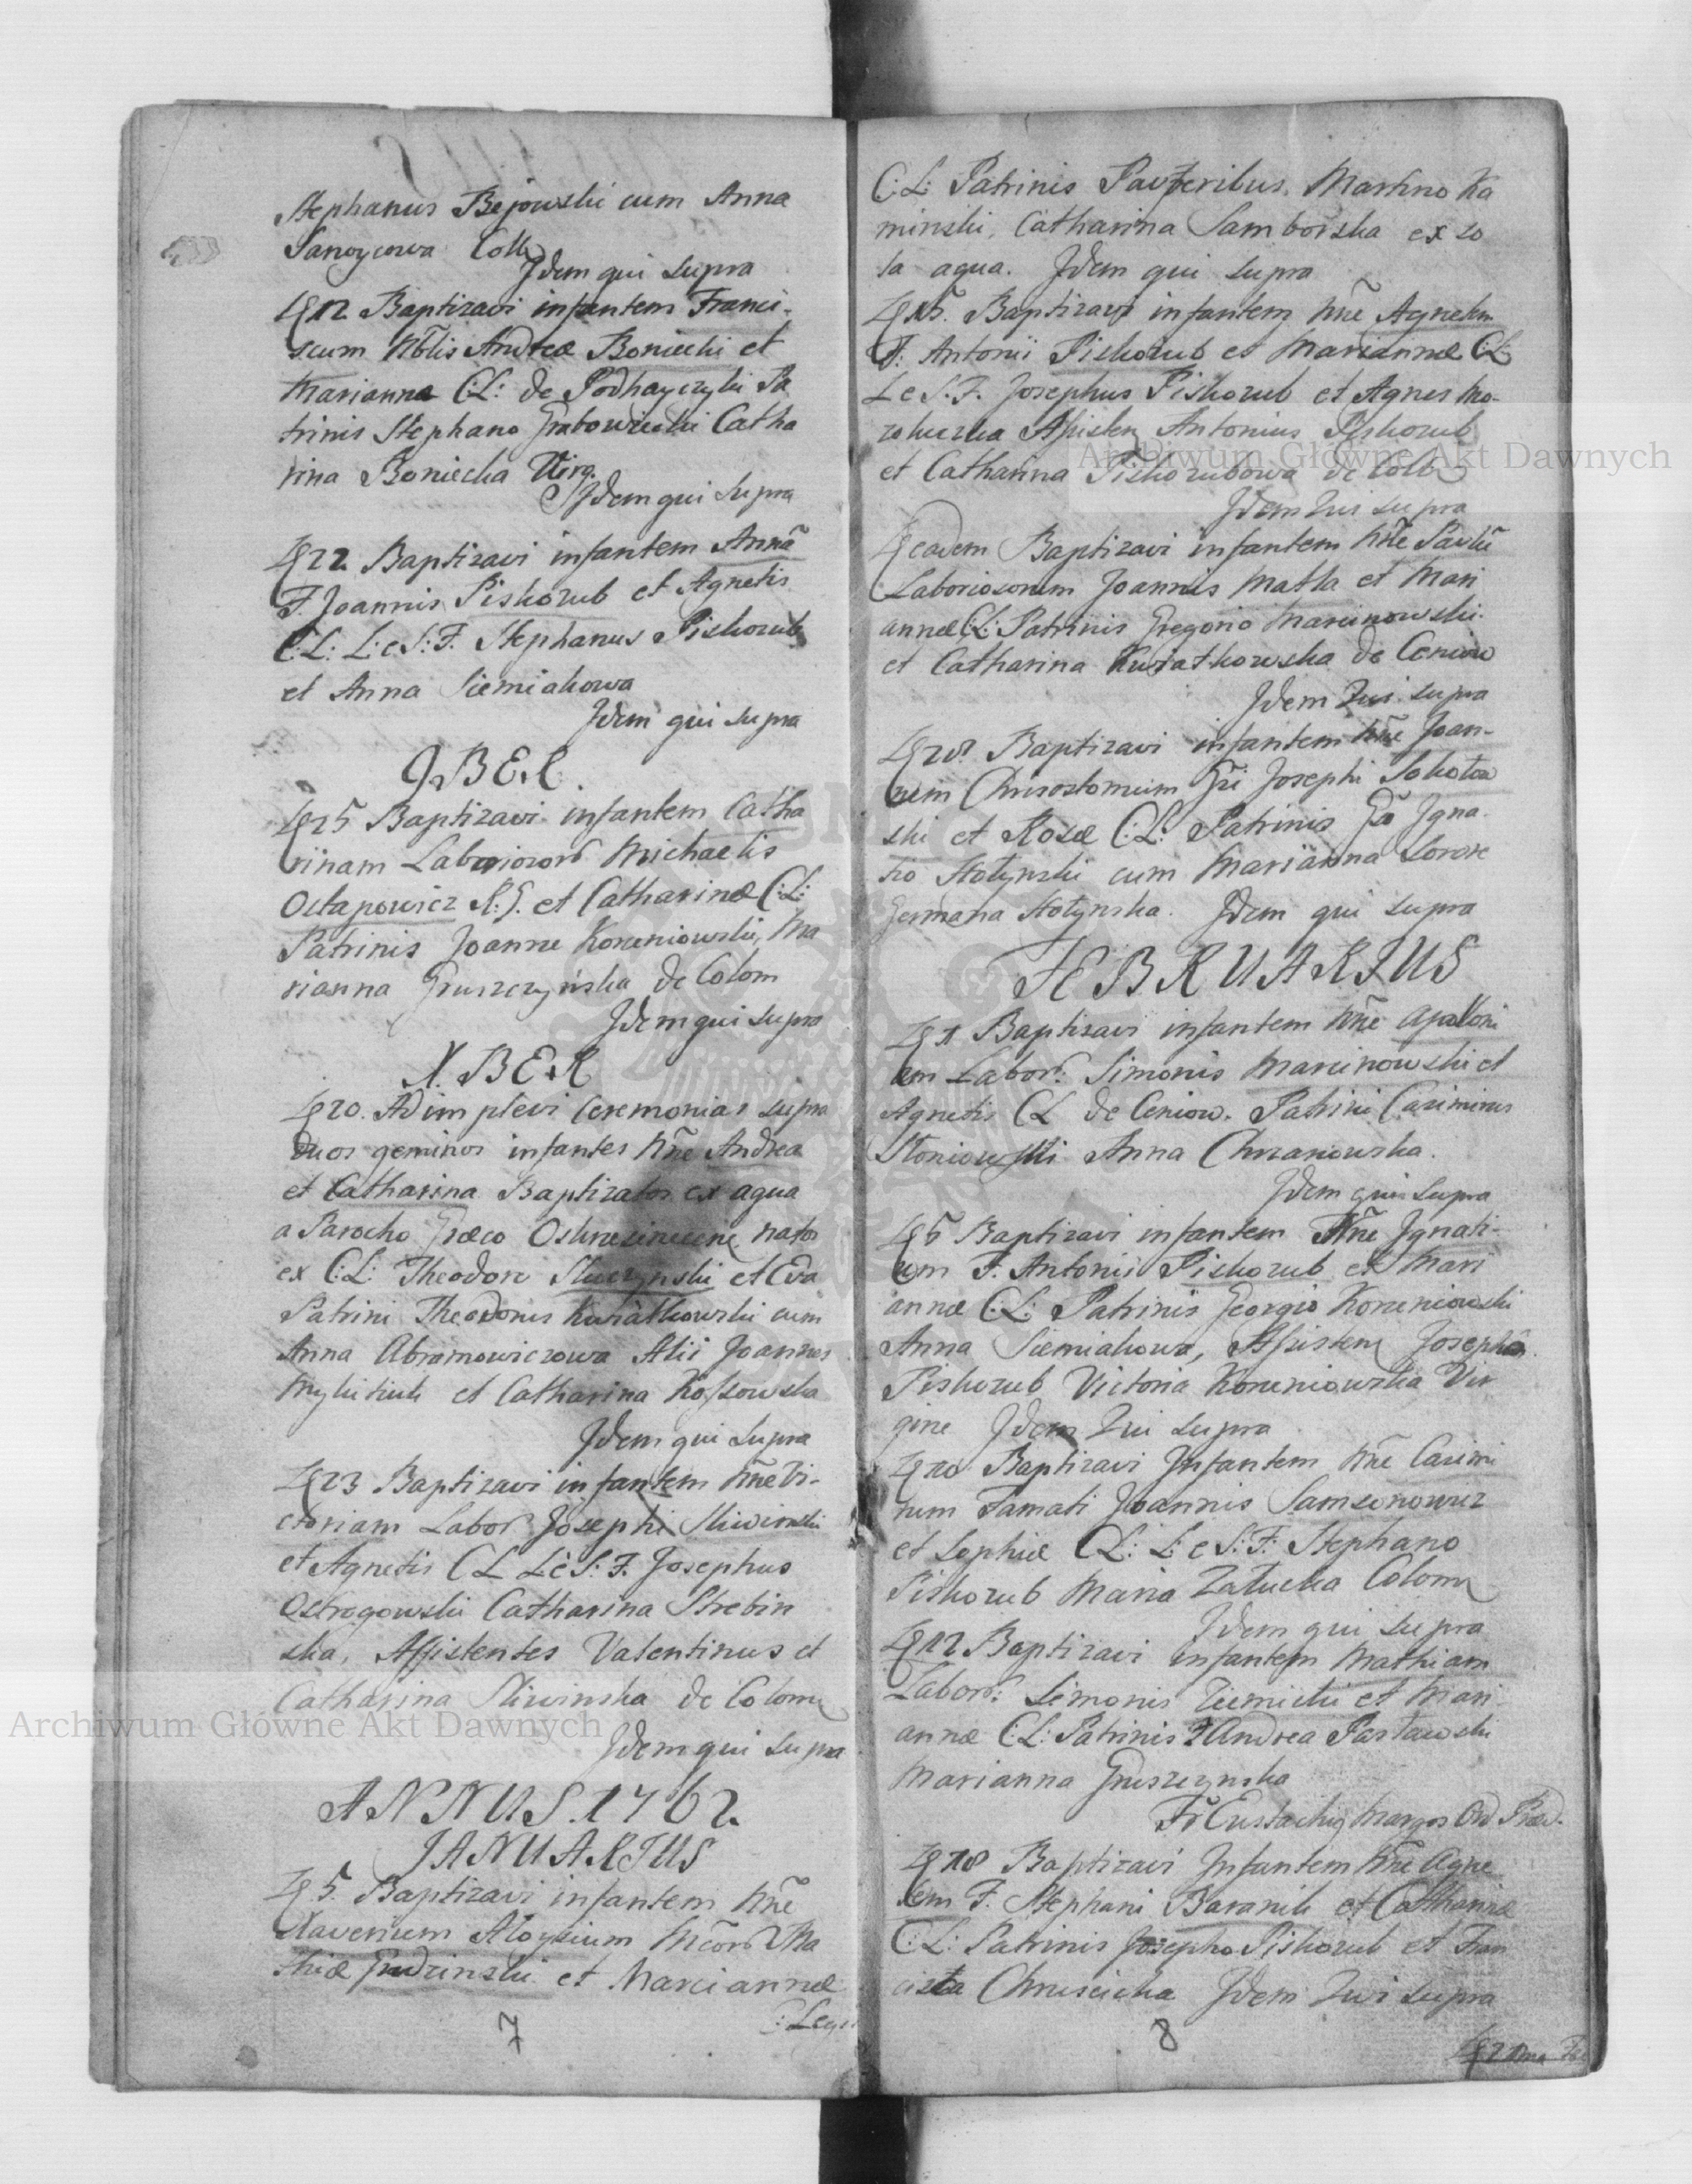 Stephanus Bejowski cum Anna
Sanoycowa Coll
Idem qui supra
12 Baptizavi infantem Franci-
scum Nblis Andreæ Boniecki et
Mariannæ C:L: de Podhayczyki Pa
trinis Stephano Grabowiecki Catha
rina Boniecka Virg.
Idem qui supra
22 Baptizavi infantem Annã
F. Joannis Piskozub et Agnetis
C:L: L:e S:F. Stephanus Piskozub
et Anna Siemiakowa
Idem qui supra
9.BER.
25 Baptizavi infantem Catha
rinam Laborioror Michaelis
Octapowicz R:G. et Catharinæ C:L:
Patrinis Joanne Korzeniowski, Ma
rianna Gruszczyńska de Colom
Idem qui supra
X.BER
20. Adimplevi Ceremonias supra
duos geminos infantes nñe Andrea
et Catharina Baptizatos ex aqua
a Parocho Græco natos
ex C:L: Theodoro et Eva
Patrini Theodorus Kwiatkowski cum
Anna Abramowiczowa Alii Joannes
Mykitiuk et Catharina Kossowska
Idem qui supra
23 Baptizavi infantem nñe Vi-
ctoriam Labor Josephi Sliwinski
et Agnetis CL L:e S:F. Josephus
Ostrogowski Catharina Strebin
ska, Assistentes Valentinus et
Catharina Sliwinska de Colom
Idem qui supra
ANNUS.1762.
JANUARIUS
5. Baptizavi infantem nñe
Xaverium Aloysium Ma
thiæ Gudzinski et Mariannæ
: Legi
7
C:L: Patrinis Pauperibus. Martino Ka
minski, Catharina Samborska ex so
la aqua. Idem qui supra
15. Baptizavi infantem nñe Agnetem
F: Antonii Piskozub et Mariannæ C:L:
L e S.F. Josephus Piskozub et Agnes Mo-
Assisten Antonius Piskozub
et Catharina Piskozubowa de Coll
Idem Qui supra
eadem Baptizavi infantem nñe Paulũ
Laboriosorum Joannis Matla et Mari
annæ C:L: Patrinis Gregorio Marcinowski
et Catharina Kwiatkowska de Ceniow
Idem Qui supra
28 Baptizavi infantem nñe Joan-
nem Chrisostomum Gsi Josephi Sokołow
ski et Rosæ C:L: Patrinis Gso Igna-
tio Hołynski cum Marianna Sorore
Germana Hołynska. Idem qui supra
FEBRUARIUS
1 Baptizavi infantem nñe Apolloni
am Labor: Simonis Marcinowski et
Agnetis CL de Ceniow. Patrini Casimirus
Słoniowski Anna Chrzanowska.
Idem qui supra
5 Baptizavi infantem Nñe Ignati-
um F. Antonii Piskozub et Mari
annæ C:L: Patrinis Georgio Korzeniowski
Anna Siemiakowa, Assisten Josepho
Piskozub Victoria Korzeniowska Vir
gine Idem Qui supra
10 Baptizavi Infantem nñe Casimi
rum Famati Joannis Samsonowicz
et Sophiæ C:L: L: e S:F: Stephano
Piskozub Maria Załucka Colom
Idem qui supra
12 Baptizavi infantem Mathiam
Labor: Simonis Ziemicki et Mari
annæ C:L: Patrinis Andrea Pasławski
Marianna Gruszczynska
Fr Eustachius Margos Ord Præd.
18 Baptizavi Infantem nñe Agne
tem F. Stephani Baraniuk et Catharinæ
C:L: Patrinis Josepho Piskozub et Fran
cisca Chruscicka Idem Qui supra
8
Archiwum Główne Akt Dawnych
Archiwum Główne Akt Dawnych